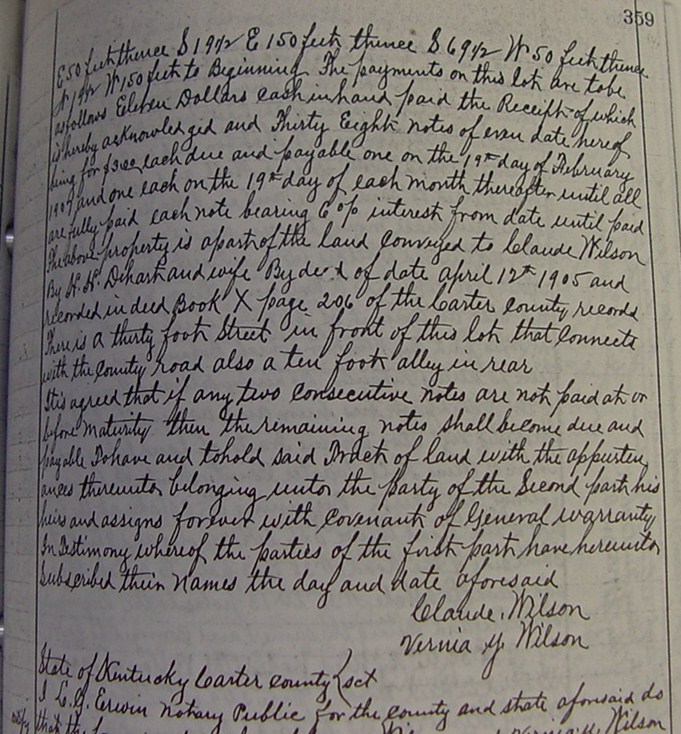 359
E 50 feet thence S 19 1/2 E 150 feet thence S 69 1/2 W 50 feet thence
N 19 1/2 W 150 feet to Beginning The payments on this lot are to be
as follows Eleven Dollars cash in hand paid the Receipt of which
is hereby acknowledgid and Thirty Eight notes of even date hereof
being for $3.00 each due and payable one on the 19th day of February
1907 and one each on the 19th day of each month thereafter until all
are fully paid each note bearing 6 o/o interest from date until paid
The above property is a part of the land conveyed to Claude Wilson
By H. H. Dehart and wife By deed of date april 12th 1905 and
recorded in deed Book X page 206 of the Carter county records
There is a thirty foot Street in front of this lot that connects
with the county road also a ten foot alley in rear
It is agreed that if any two consecutive notes are not paid at or
before maturity then the remaining notes shall become due and
payable To have and to hold said Tract of land with the appurten
ances thereunto belonging unto the party of the Second part his
heirs and assigns forever with covenant of General warranty
In Testimony whereof the parties of the first part have hereunto
Subscribed their names the day and date aforesaid
Claude Wilson
Vernia Y Wilson
State of Kentucky Carter county } sct
I L. G. Erwin Notary Public for the county and state aforesaid do
that the Vernia Y. Wilson